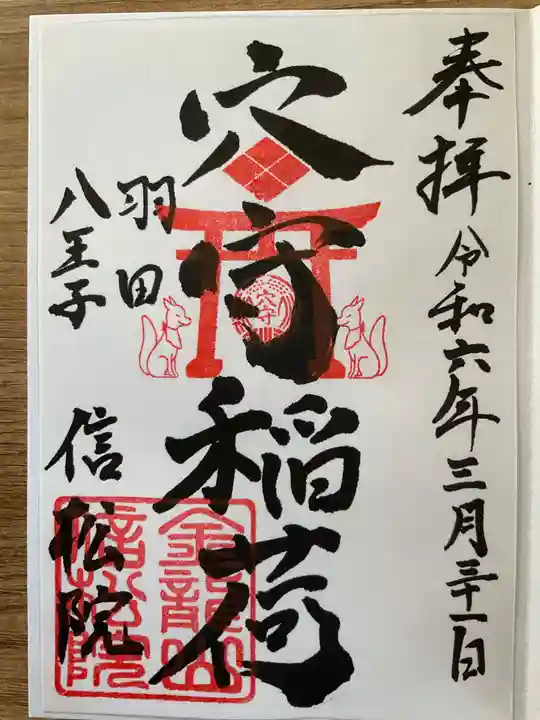 奉拝 令和六年三月三十一日
穴守稲荷
羽田
八王子
信松院
金龍山
信松院
穴守